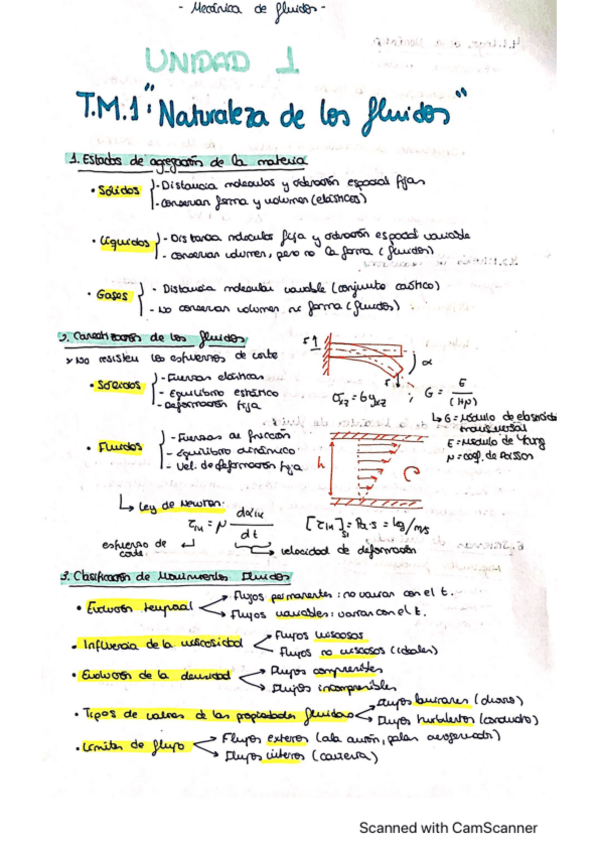 - Mecánica de fluidos -
UNIDAD 1
T.M.1 "Naturaleza de los fluidos"
1. Estados de agregación de la materia
• Sólidos } - Distancia moleculas y ordenación espacial fijas
- conservan forma y volumen (elásticos)
• Líquidos } - Distancia molecular fija y ordenación espacial variable
- conservan volumen, pero no la forma (fluidos)
• Gases { - Distancia molecular variable (conjunto caótico)
- No conservan volumen ni forma (fluidos)
2. Características de los fluidos
* No resisten los esfuerzos de corte
• Sólidos } - Fuerzas elásticas
- Equilibrio estático
- Deformación fija
α
G = E / (1+μ)
↳ G = Módulo de elasticidad transversal
E = Módulo de Young
μ = coef. de Poisson
• Fluidos } - Fuerzas de fricción
- Equilibrio dinámico
- Vel. de deformación fija
h
↳ Ley de Newton:
dt
esfuerzo de corte
velocidad de deformación
3. Clasificación de Movimientos Fluidos
• Evolución temporal → Flujos permanentes: no varían con el t.
→ Flujos variables: varían con el t.
• Influencia de la viscosidad → Flujos viscosos
→ Flujos no viscosos (ideales)
• Evolución de la densidad → Flujos compresibles
→ Flujos incompresibles
• Tipos de valores de las propiedades fluidas → Flujos laminares
→ Flujos turbulentos (conducto)
• Límites de flujo → Flujos externos (ala avión, palas aerogenerador)
→ Flujos internos
Scanned with CamScanner